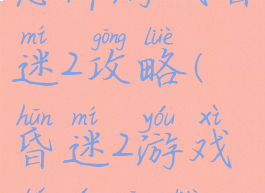 mí gōng lüè
迷2攻略(
hūn mí yóu xì
昏迷2游戏